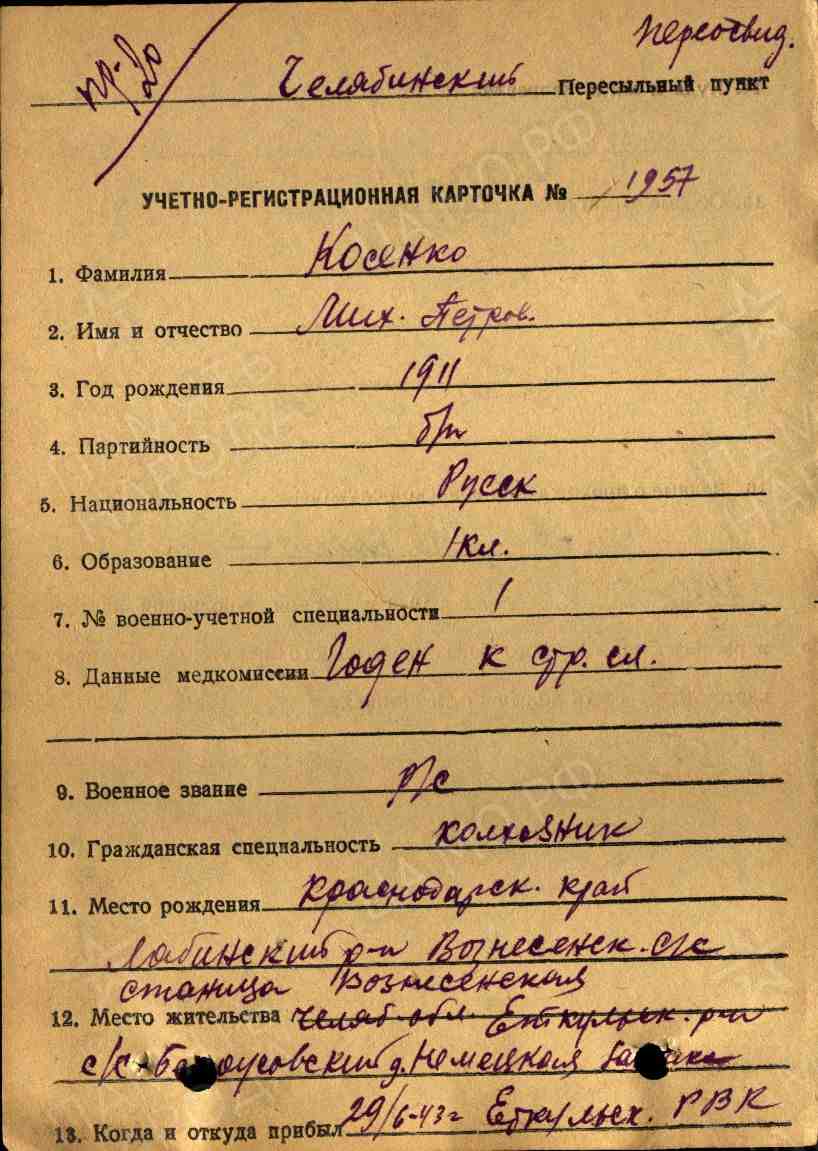 пр. 20
Пересвид.
Челябинский Пересыльный пункт
УЧЕТНО-РЕГИСТРАЦИОННАЯ КАРТОЧКА № 1957
1. Фамилия Косенко
2. Имя и отчество Мих. Петров.
3. Год рождения 1911
4. Партийность б/п
5. Национальность Русск
6. Образование 1 кл.
7. № военно-учетной специальности 1
8. Данные медкомиссии Годен к стр. сл.
9. Военное звание р/с
10. Гражданская специальность колхозник
11. Место рождения Краснодарск. край
Лабинский р-н Вознесенск. с/с
станица Вознесенская
12. Место жительства Челяб. обл. Еткульск. р-н
с/с Белоусовский д. Немецкая
13. Когда и откуда прибыл 29/6-43 г Еткульск. РВК